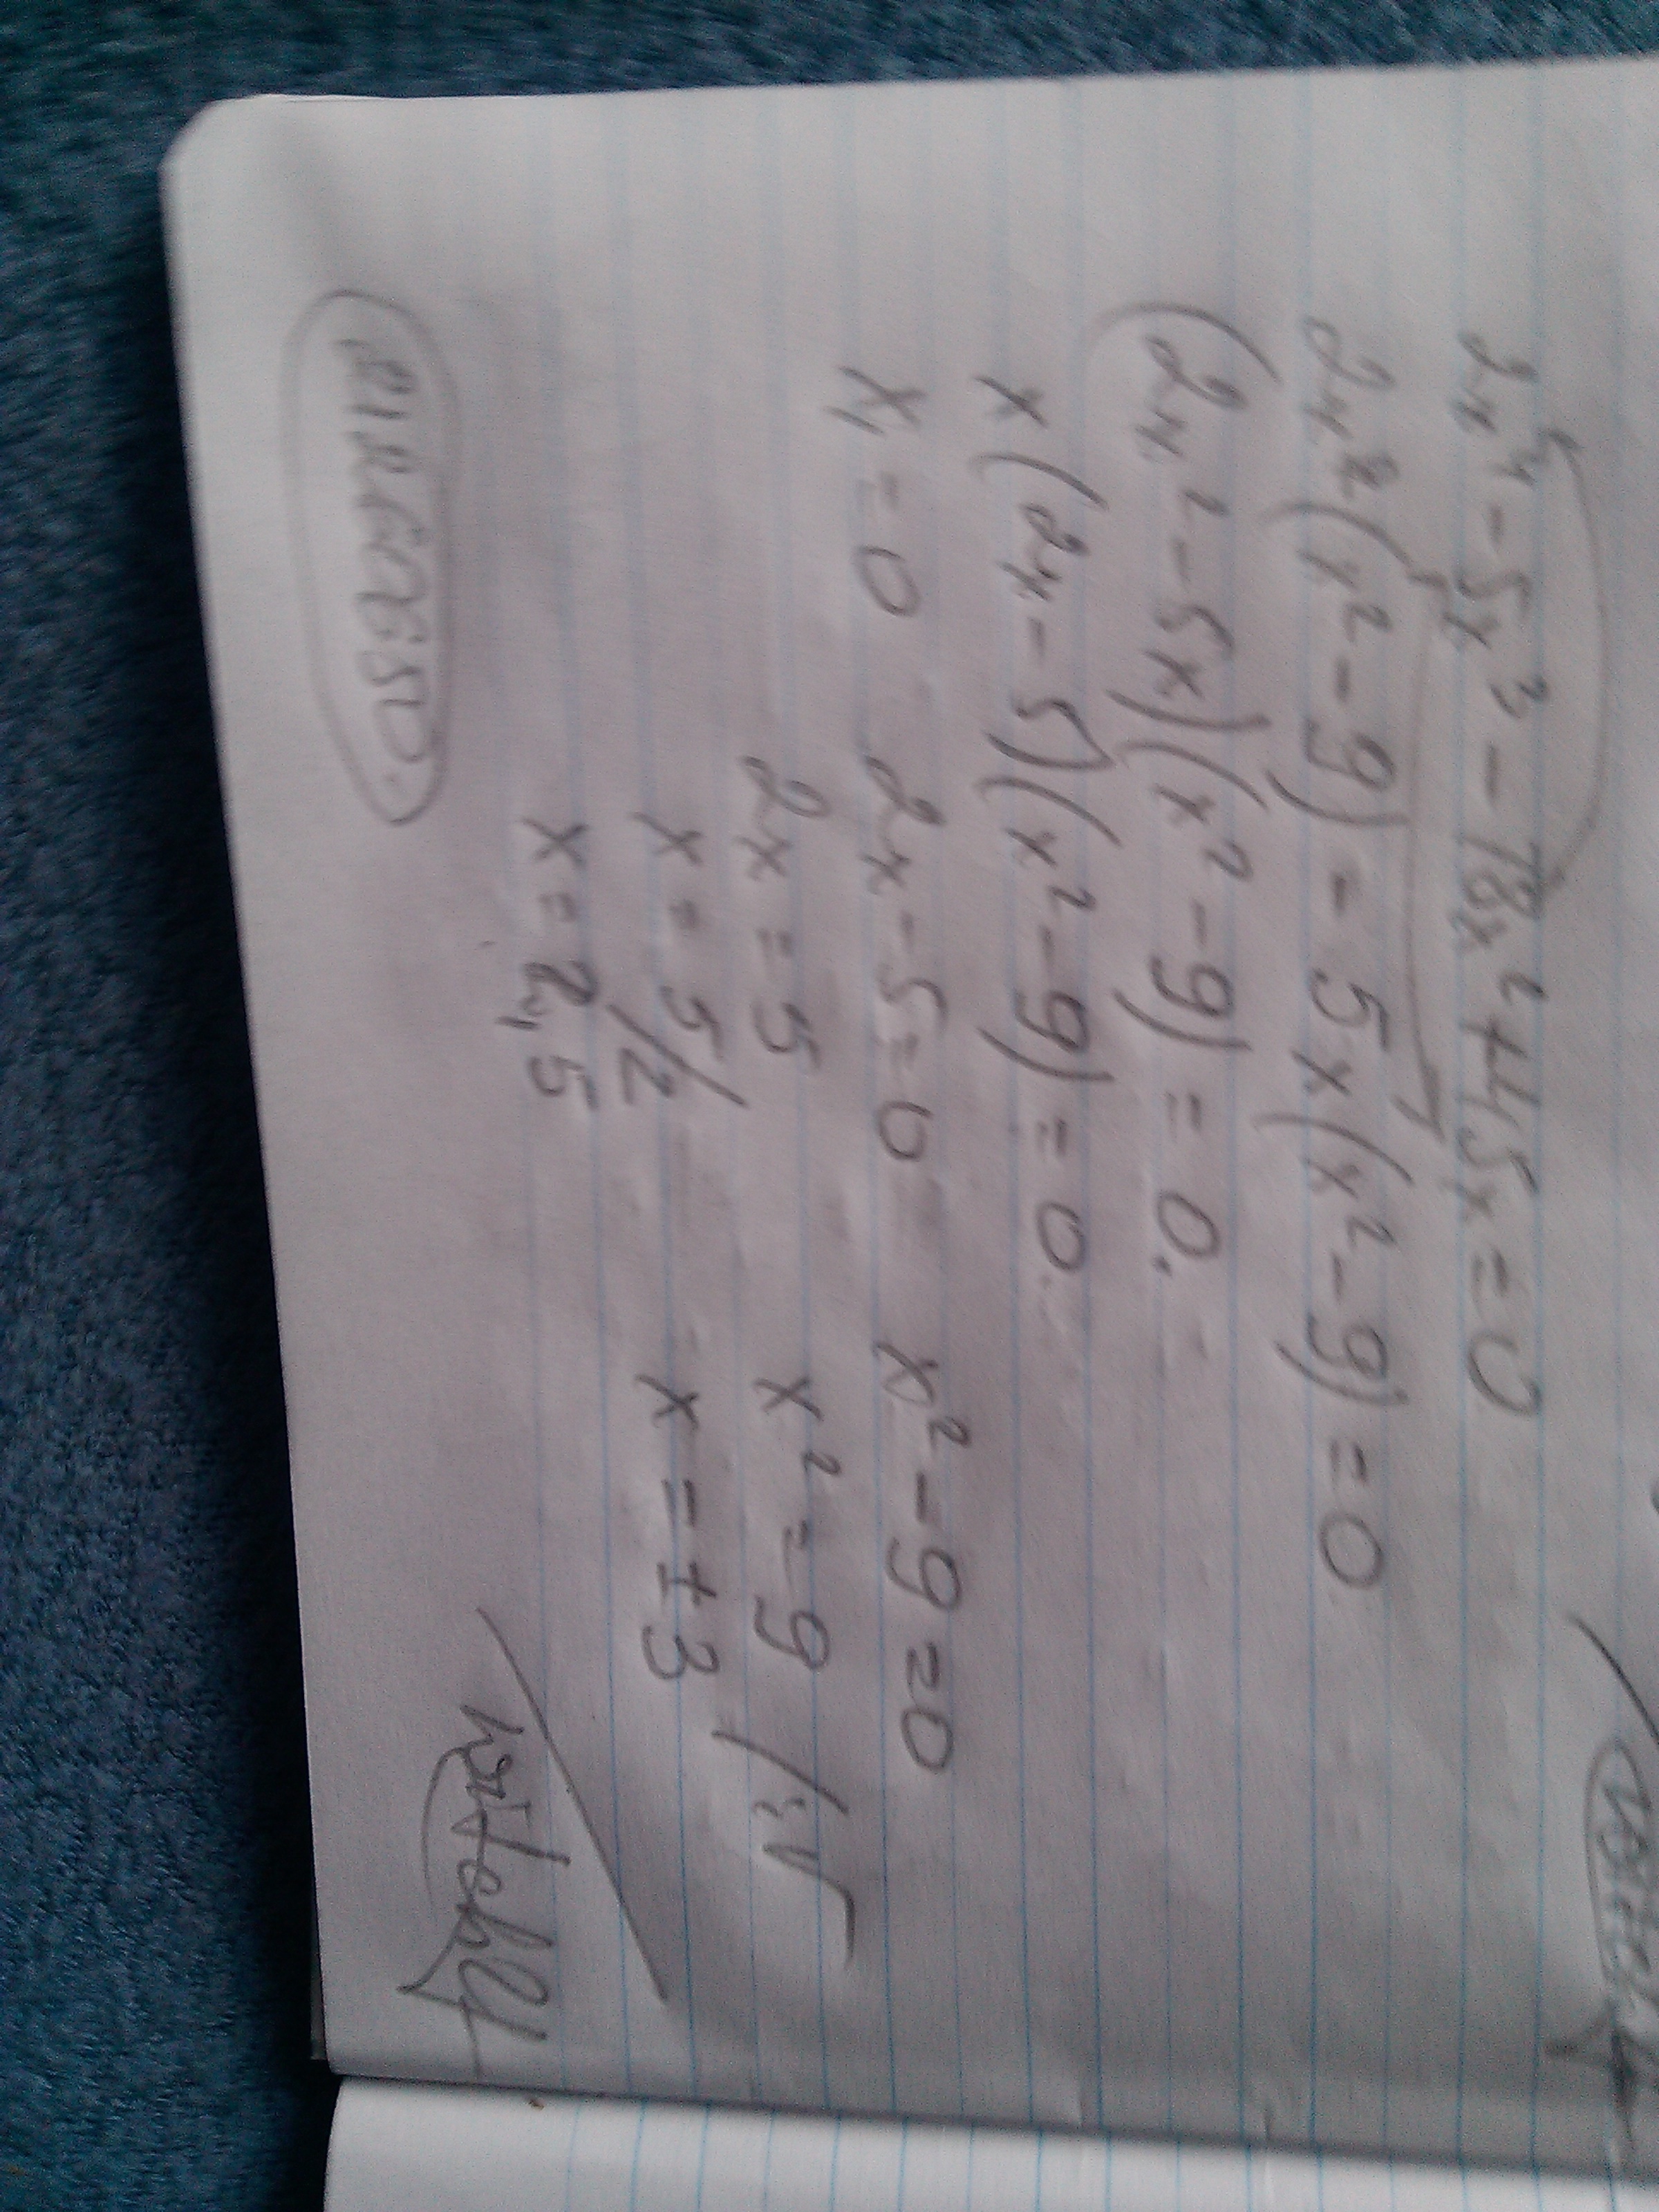 2x⁴ - 5x³ - 18x² + 45x = 0
2x²(x² - 9) - 5x(x² - 9) = 0
(2x² - 5x)(x² - 9) = 0.
x(2x - 5)(x² - 9) = 0.
x₁ = 0 2x - 5 = 0 x² - 9 = 0
2x = 5 x² = 9 /√
x = 5/2 x = ±3
x = 2,5